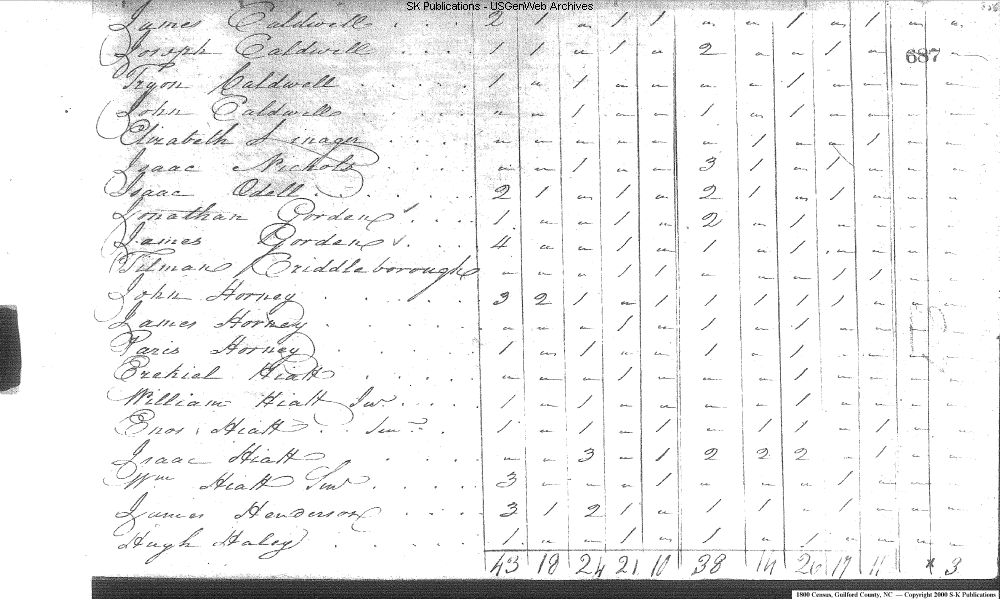 SK Publications - USGenWeb Archives
James Caldwell 2 1 " 1 1 " " 1 " 1 " "
687
Joseph Caldwell 1 1 " 1 " 2 " " 1 " "
Tryon Caldwell 1 " 1 " " " " 1 " " " "
John Caldwell " " 1 " " 1 " 1 " " " "
Elizabeth " " " " " " 1 " " 1 " "
Isaac Nichols " " 1 " " 3 1 " 1 " " "
Isaac Odell 2 1 " 1 " 2 1 " 1 " " "
Jonathan Gorden 1 " " 1 " 2 " 1 " " " "
James Gorden 4 " " 1 " 1 " 1 " " " "
Tilman Criddleborough " " " 1 1 " " " 1 1 " "
John Horney 3 2 1 " 1 1 1 1 1 " " "
James Horney " " " 1 " 1 " 1 " " " "
Paris Horney 1 " 1 " " 1 " 1 " " " "
Ezekiel Hiatt " " " 1 " " " 1 " " " "
William Hiatt Junr 1 " 1 " " " " 1 " " " "
Enos Hiatt Senr 1 " 1 " 1 " 1 1 " 1 " "
Isaac Hiatt " " 3 " 1 2 2 2 " 1 " "
Wm Hiatt Senr 3 " " " 1 " " " 1 " " "
James Henderson 3 1 2 1 " 1 1 " 1 " " "
Hugh Haley 1 " " 1 " 1 " 1 " " " "
43 18 24 21 10 38 14 26 17 11 * 3
1800 Census, Guilford County, NC — Copyright 2000 S-K Publications